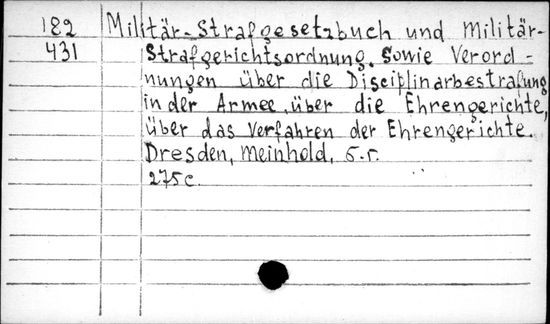 182 Militär-Strafgesetzbuch und Militär-
431 Strafgerichtsordnung. Sowie Verord-
nungen über die Disciplinarbestrafung
in der Armee, über die Ehrengerichte,
über das Verfahren der Ehrengerichte.
Dresden, Meinhold, б.г.
275с.